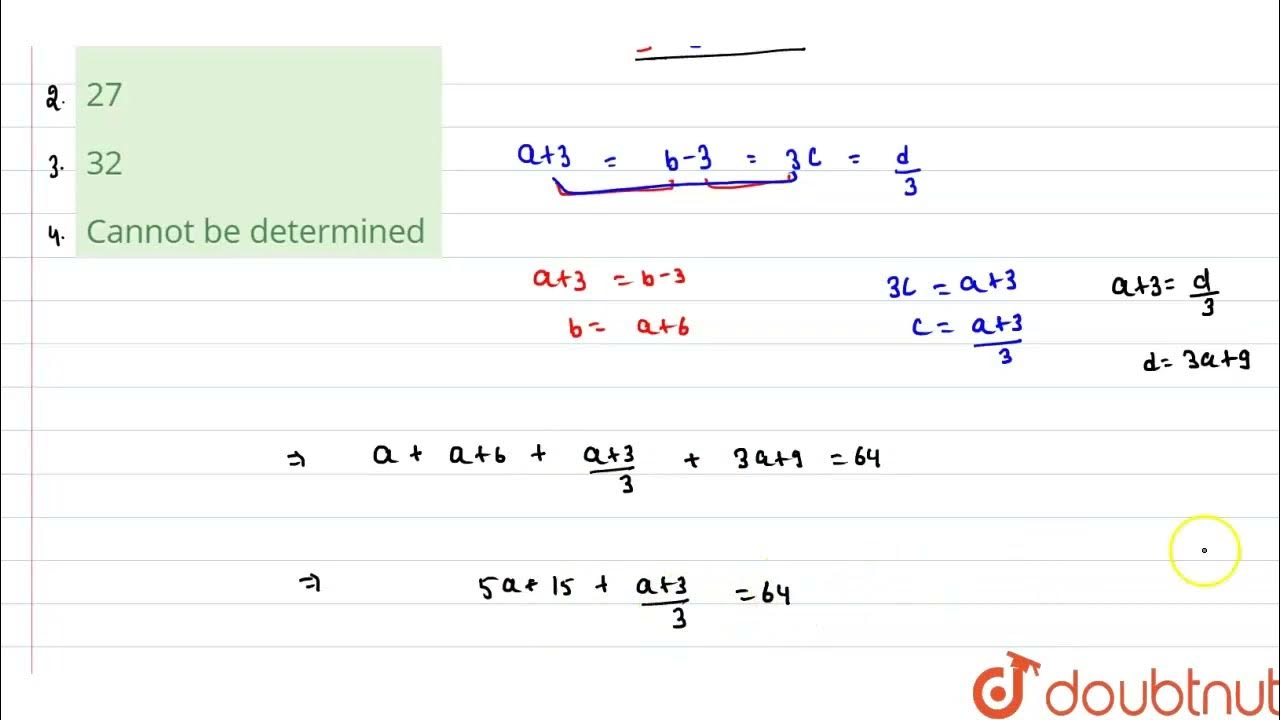 2. 27
3. 32
4. Cannot be determined
a+3 = b-3 = 3c = d/3
a+3 = b-3
b = a+6
3c = a+3
c = a+3/3
a+3 = d/3
d = 3a+9
⇒ a + a+6 + a+3/3 + 3a+9 = 64
⇒ 5a+15 + a+3/3 = 64
doubtnut